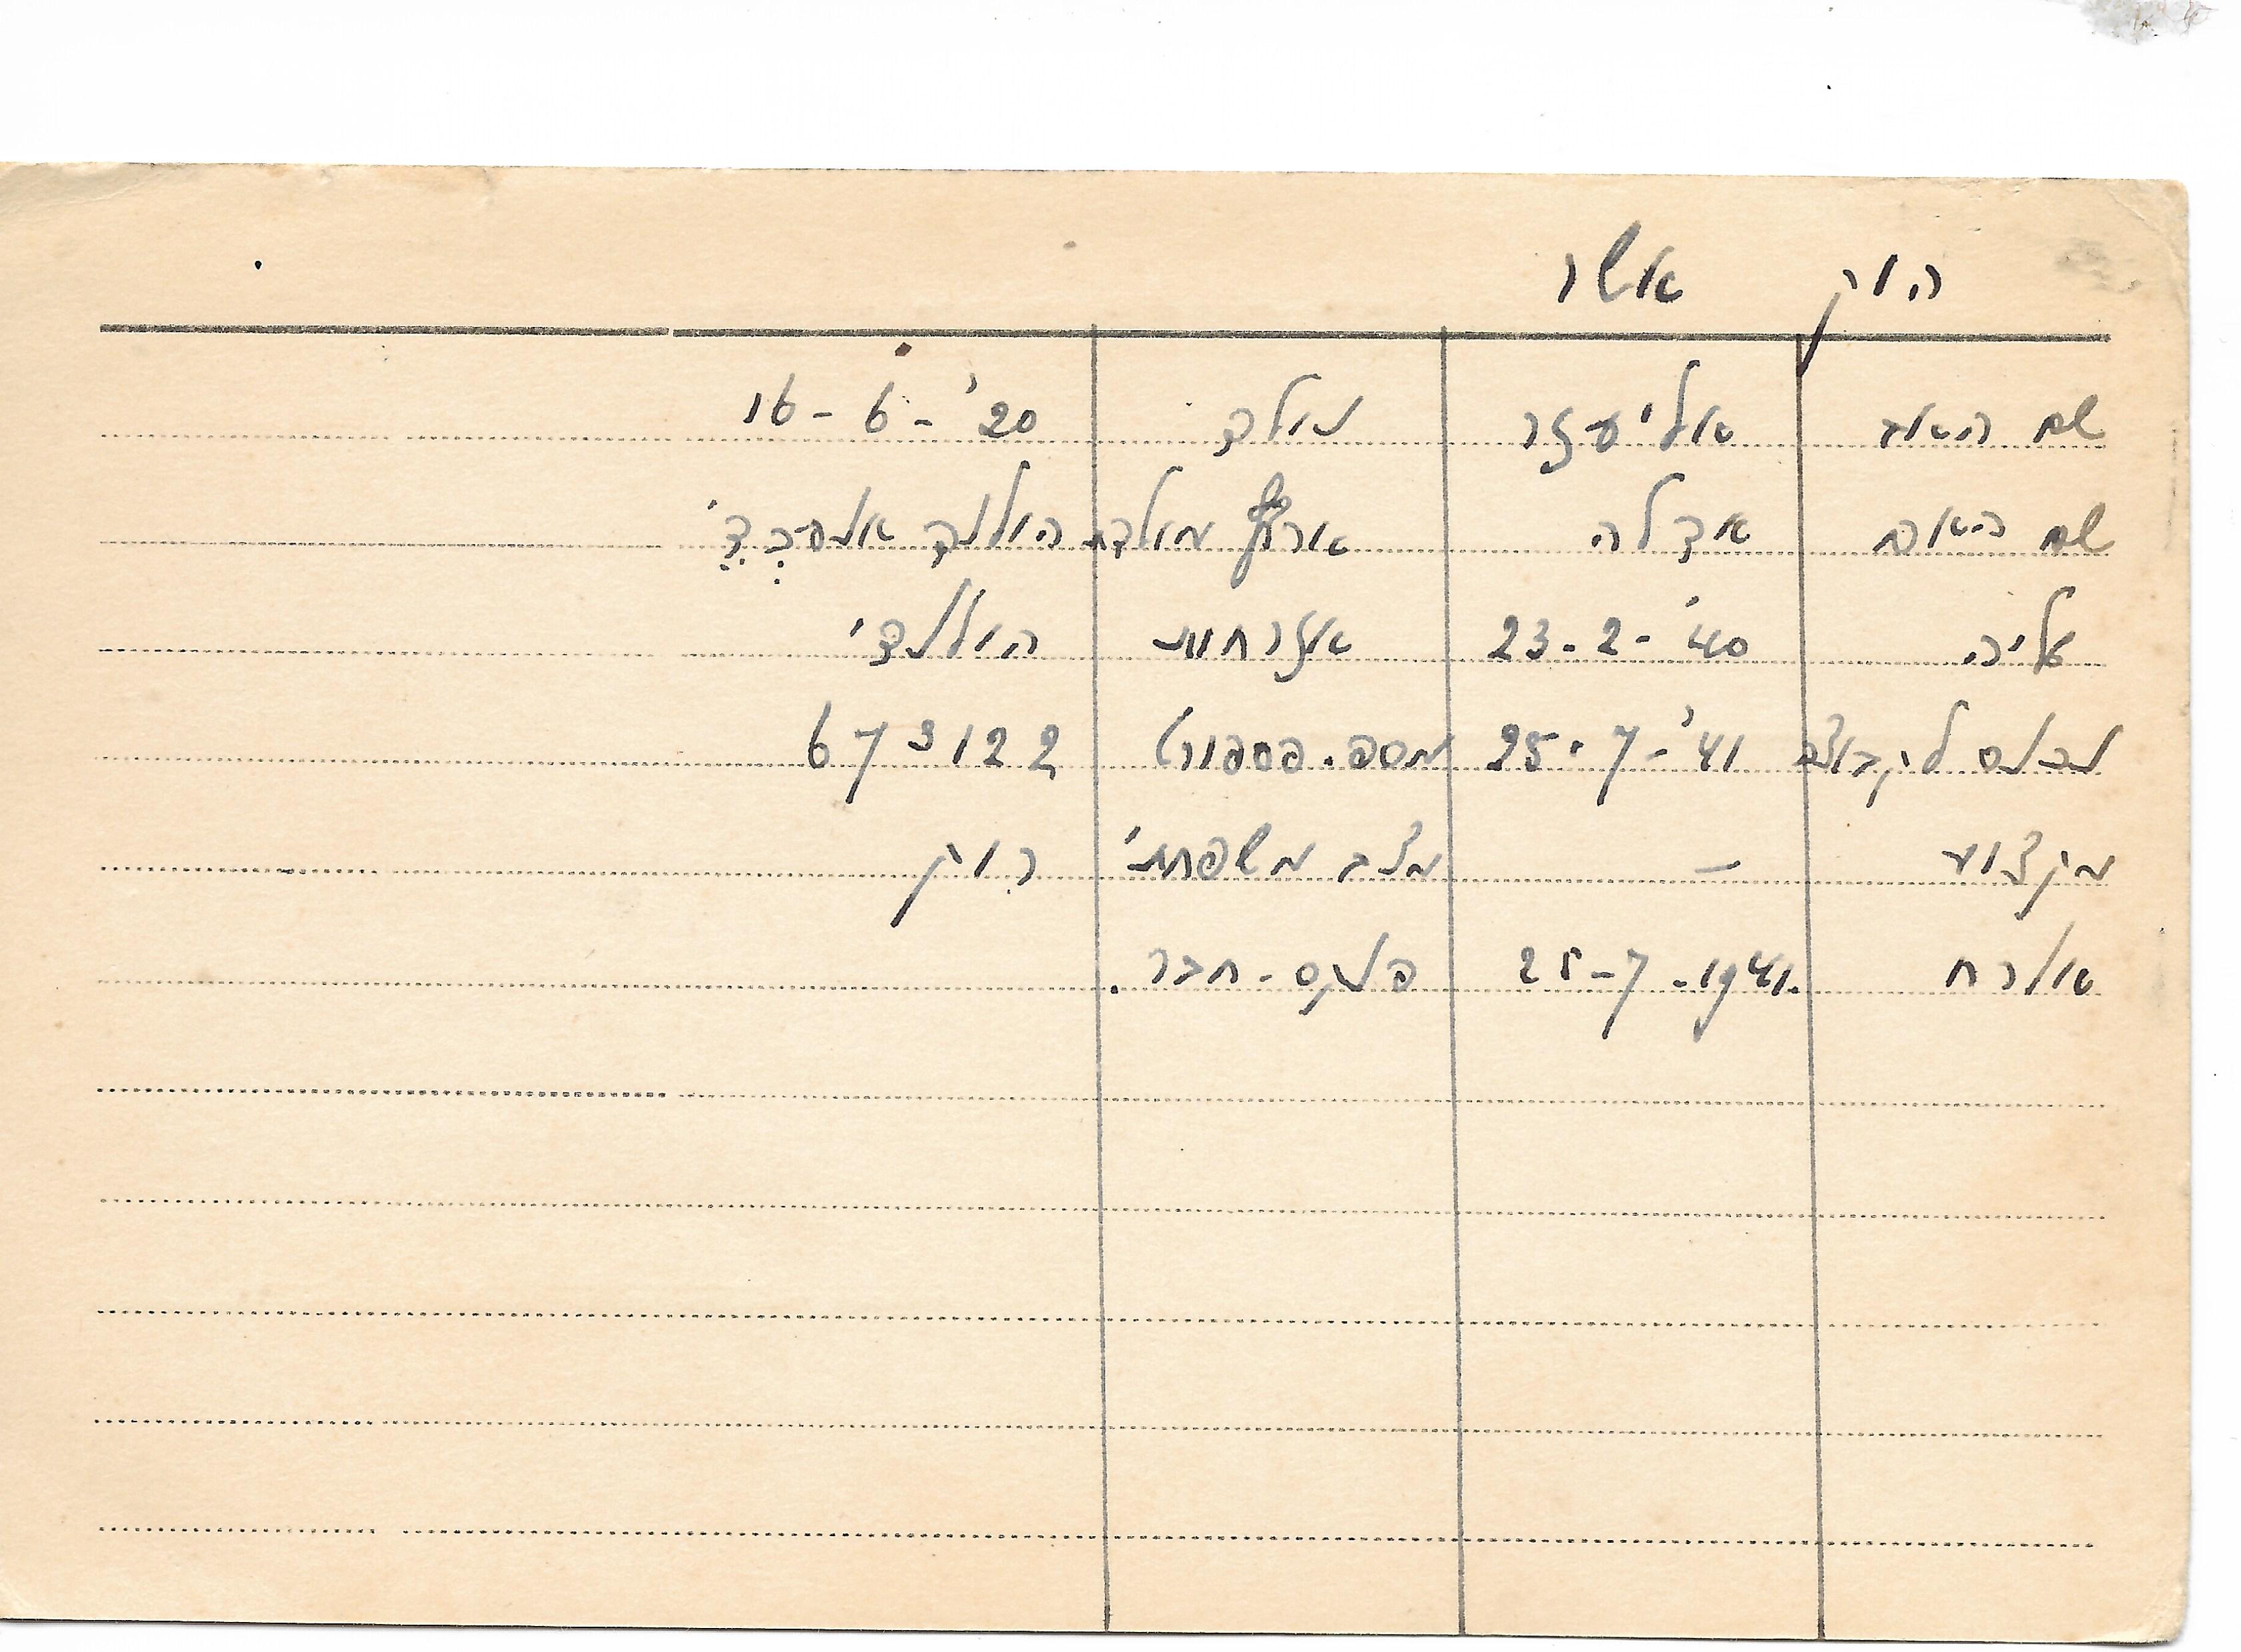 רווק אשר
שם האב אליעזר נולד 16-6-'20
שם האם אדלה ארץ מולדת הולנד
עליה 23-2-'40 אזרחות הולנדי
נכנס לקבוצה 25-7-'41 מספ. פספורט 673122
מקצוע – מצב משפחתי רווק
אורח 25-7-1941. פנקס-חבר.